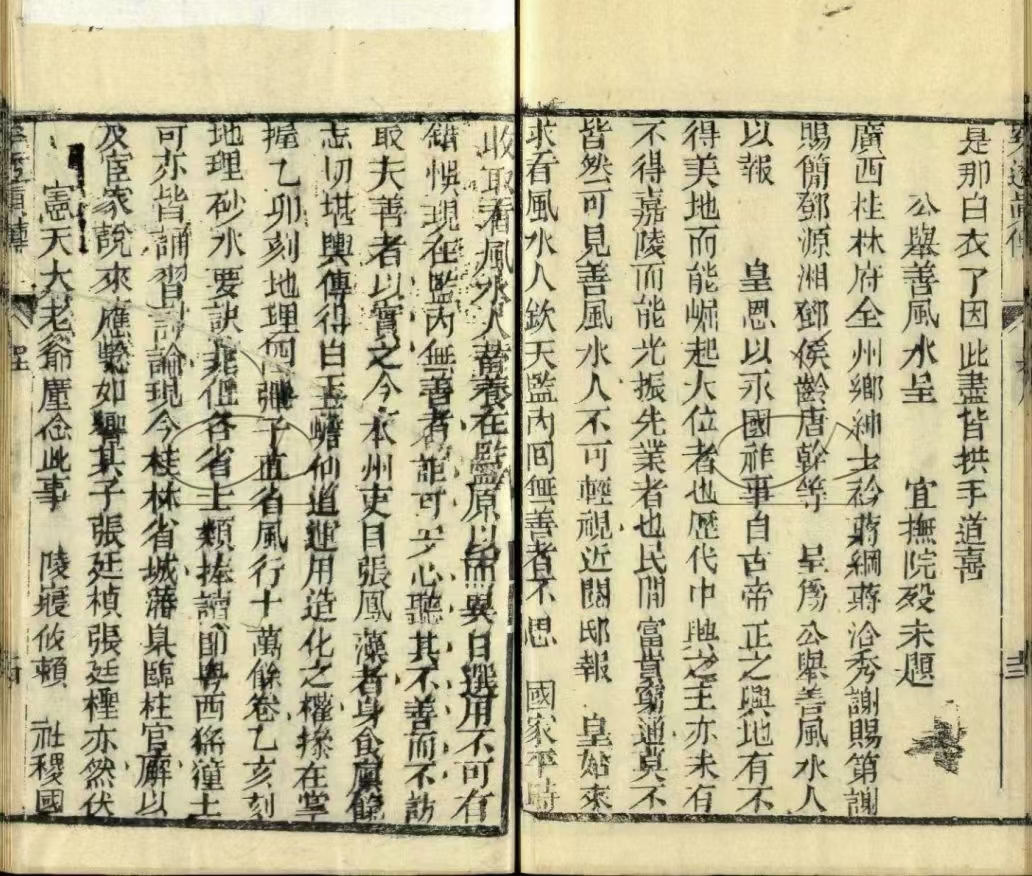 是那白衣了因此盡皆拱手道喜
公舉善風水呈 宜撫院殁未題
廣西桂林府全州鄉紳士衿蔣綱蔣洽秀謝賜第謝
賜簡鄧源湘鄧俟齡唐幹等 呈爲公舉善風水人
以報 皇恩以永國祚事自古帝正之興地有不
得美地而能崛起大位者也歷代中興之王亦未有
不得嘉陵而能光振先業者也民間富貴窮通莫不
皆然可見善風水人不可輕視近閱邸報 皇姑來
求看風水人欽天監內囘無善者不思 國家平時
收取看風水人蓄養在監原以爲異日選用不可有
錯悞現在監內無善者詎可安心聽其不善而不訪
取夫善者以實之今本州吏目張鳳藻者身食廩餼
志切堪輿傳得白玉蟾仙道運用造化之權操在掌
握乙卯刻地理 彈子直省風行十萬餘卷乙亥刻
地理砂水要訣 各省士類捧讀卽粤西猺獞土
可亦皆誦習討論現今桂林省城藩臬臨柱官廨以
及宦家說來應驗如響其子張廷楨張廷檉亦然伏
憲天大老爺廑念此事 陵寢攸賴 社稷國